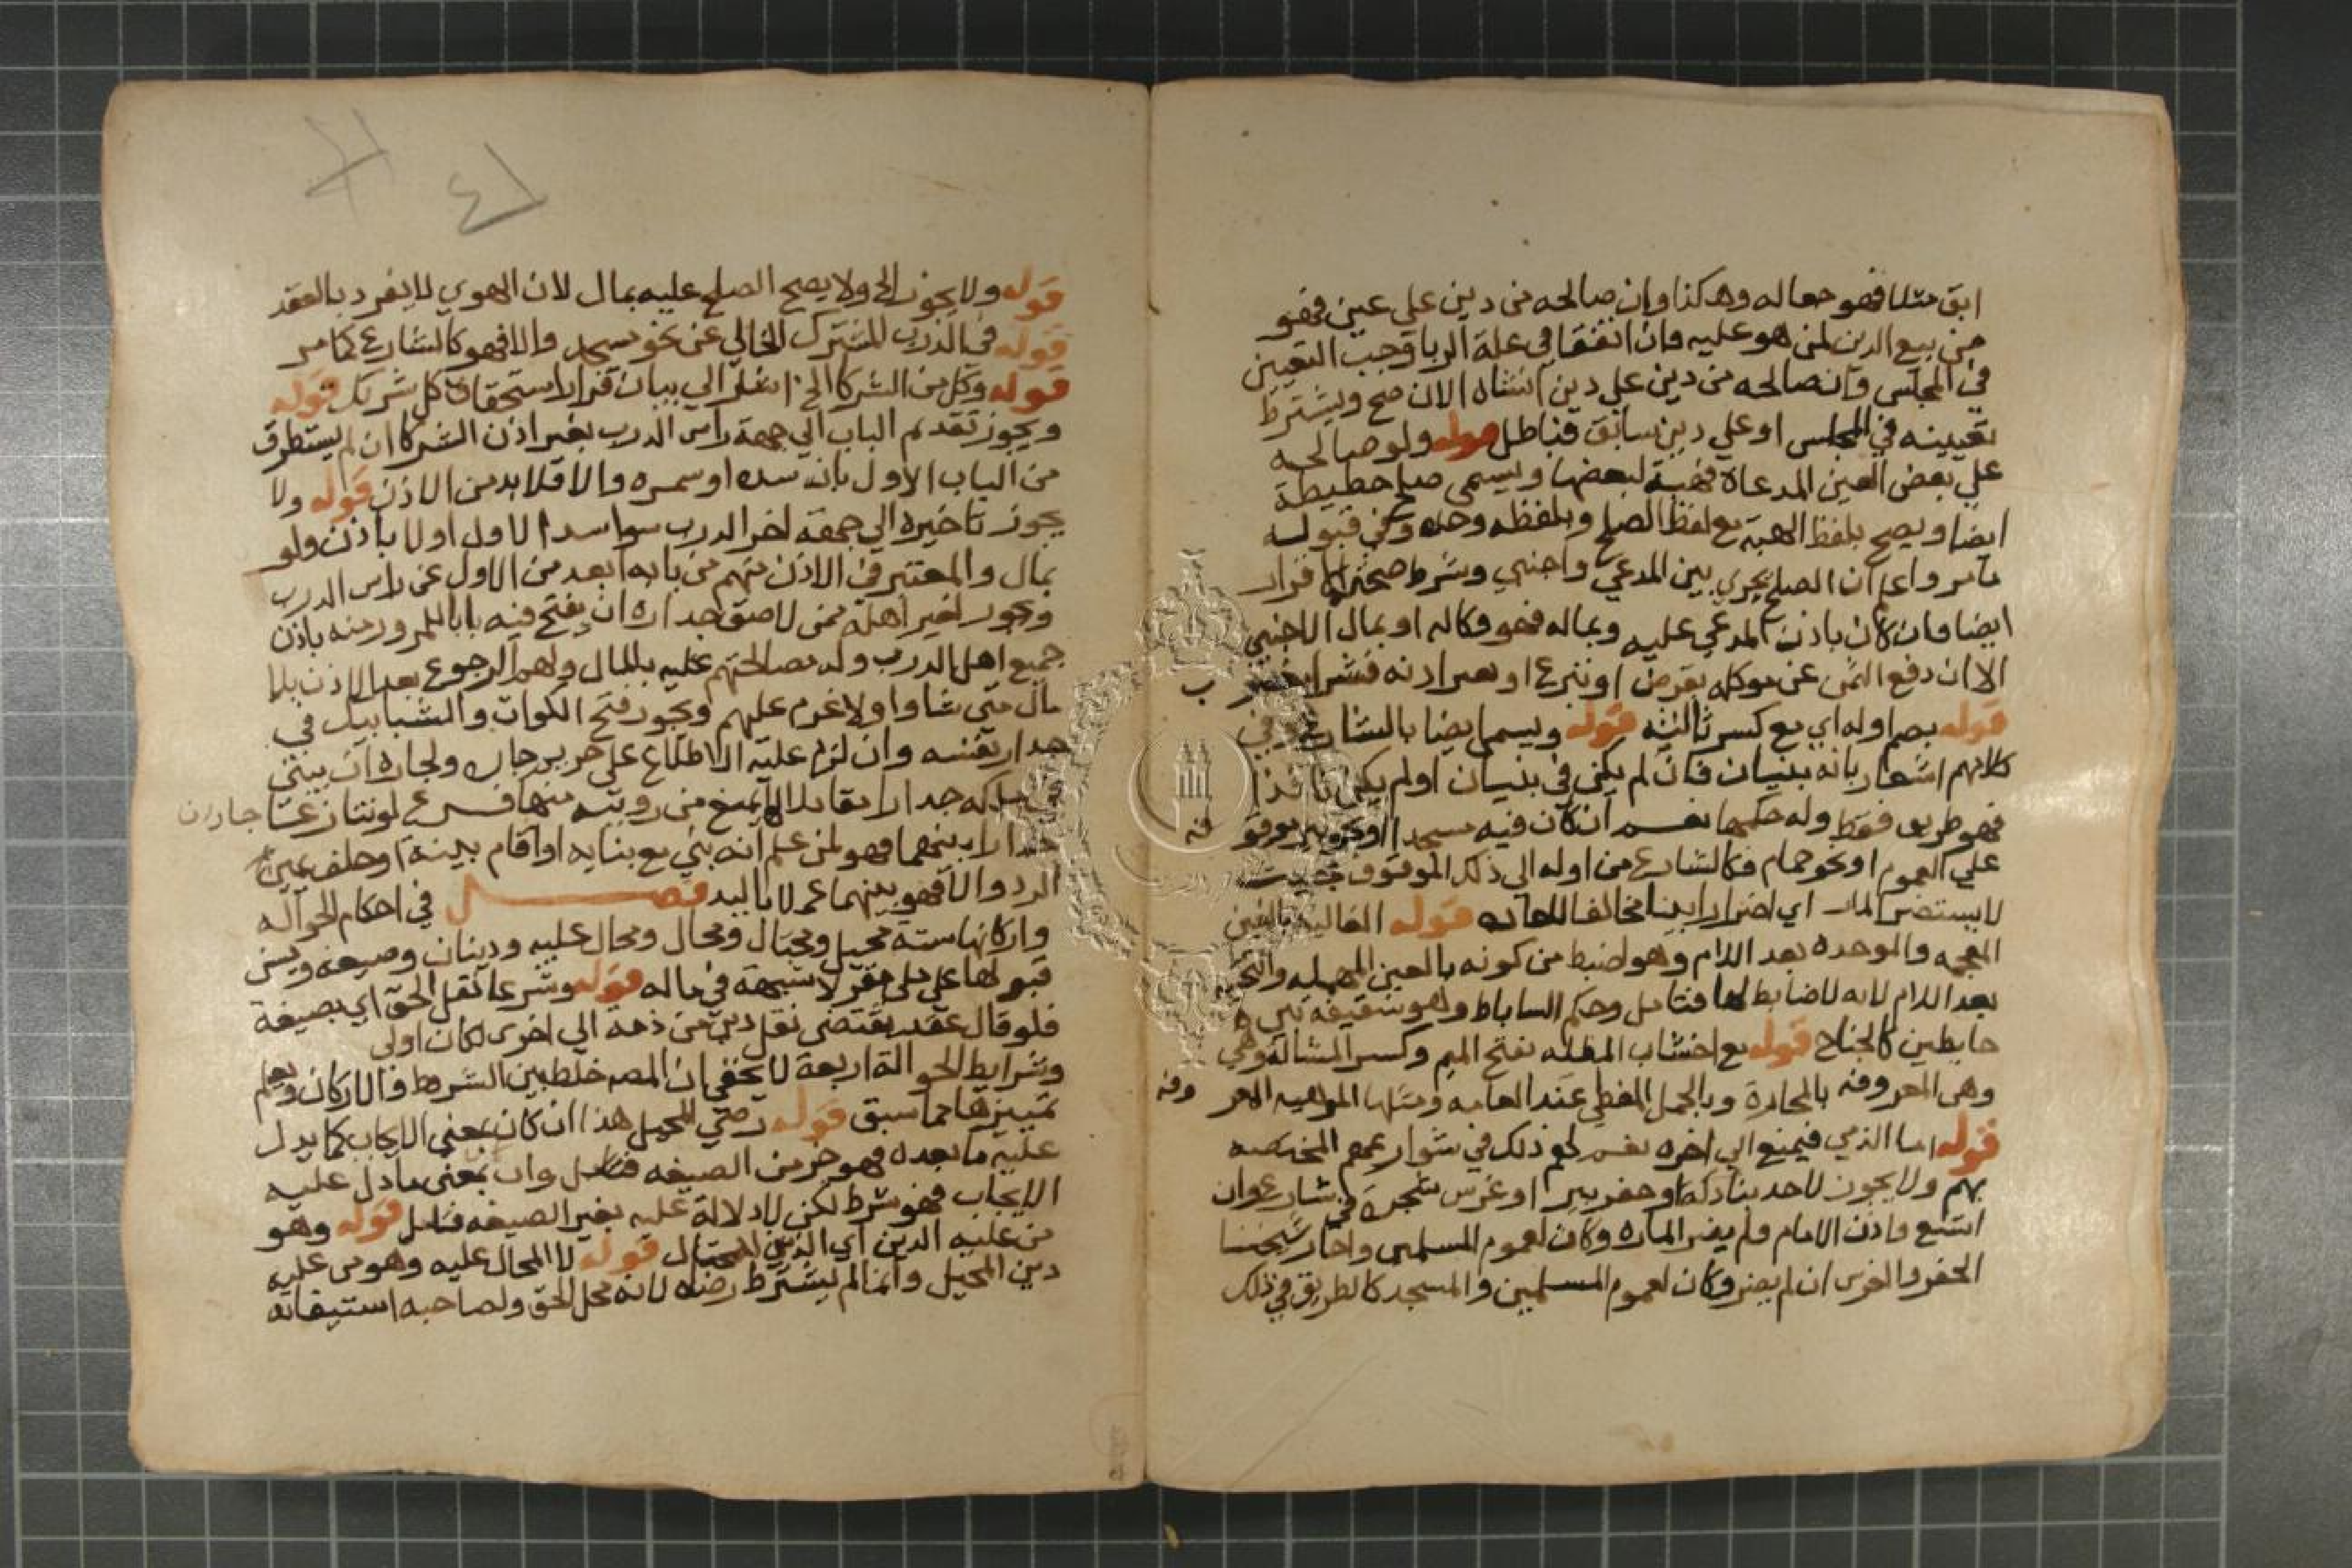 ابق مثلا فهو جعاله وهكذا وان صالحه من دين علي عين فهو
من بيع الدين لمن هو عليه فان اتفقا في علة الربا وجب التعيين
في المجلس وان صالحه من دين علي دين انشاه الان صح ويشترط
تعيينه في المجلس او علي دين سابق فباطل قوله ولو صالحه
علي بعض العين المدعاة فهبة لبعضها ويسمي صلح حطيطة
ايضا ويصح بلفظ الهبة مع لفظ الصلح وبلفظه وحده وفي قبوله
ما مر واعلم ان الصلح يجري بين المدعي واجنبي وشرط صحته الاقرار
ايضا فان كان باذن المدعي عليه وبماله فهو وكاله او بمال الاجنبي
الا ان دفع الثمن عن موكله بقرض او تبرع او بغير اذنه فشرا
قوله بضم اوله اي مع كسر ثالثه قوله ويسمي ايضا بالشارع وفي
كلامهم اشعار بانه بنيان فان لم يكن في بنيان او لم يكن نافذا
فهو طريق فقط وله حكمها نعم ان كان فيه مسجد او نحو بير موقوفه
علي العموم او نحو حمام فكالشارع من اوله الي ذلك الموقوف
لا يستضر المار اي اضرارا بينا مخالفا للعاده قوله الغالبه بالغين
المعجمه والموحده بعد اللام وهو اضبط من كونه بالعين المهمله والتحتيه
بعد اللام لانه لا ضابط لها فتامل وحكم الساباط وهو سقيفة بين
حايطين كالجناح قوله مع اخشاب المظله بفتح الميم وكسر المشالة وهي
وهي المعروفه بالمحارة وبالجمل المغطي عند العامه ومثلها المواهيه المعروفه
قوله اما الذمي فيمنع الي اخره نعم لهم ذلك في شوارعهم المختصه
بهم ولا يجوز لاحد بنا دكة او حفر بير او غرس شجرة في شارع وان
اتسع واذن الامام ولم يضر الماره وكان لعموم المسلمين واجاز شيخنا
الحفر والغرس ان لم يضر وكان لعموم المسلمين والمسجد كالطريق في ذلك
قوله ولا يجوز الخ ولا يصح الصلح عليه بمال لان الهوي لا يفرد بالعقد
قوله في الدرب المشترك الخالي عن نحو مسجد والا فهو كالشارع كما مر
قوله وكل من الشركا الخ اشار الي بيان قدر استحقاق كل شريك قوله
ويجوز تقديم الباب الي جهة راس الدرب بغير اذن الشركا ان لم يستطرق
من الباب الاول بان سده او سمره والا فلا بد من الاذن قوله ولا
يجوز تاخيره الي جهة اخر الدرب سوا سد الاول او لا باذن ولو
بمال والمعتبر في الاذن منهم من بابه ابعد من الاول عن راس الدرب
ويجوز لغير اهله ممن لاصق جداره ان يفتح فيه بابا للمرور منه باذن
جميع اهل الدرب وله مصالحتهم عليه بالمال ولهم الرجوع بعد الاذن بلا
مال متي شاوا ولا غرم عليهم ويجوز فتح الكوات والشبابيك في
جدار نفسه وان لزم عليه الاطلاع علي حريم جاره ولجاره ان يبني
في ملكه جدارا مقابلا لها يمنع من رويته منها فرع لو تنازعا جاران
جدارا بينهما فهو لمن علم انه بني مع بنايه او اقام بينة او حلف يمين
الرد والا فهو بينهما عملا باليد فصل في احكام الحواله
واركانها ستة محيل ومحتال ومحال ومحال عليه ودينان وصيغه ويسن
قبولها علي ملي مقر لا شبهة في ماله قوله وشرعا نقل الحق اي بصيغة
فلو قال عقد يقتضي نقل دين من ذمه الي اخري لكان اولي
وشرايط الحوالة اربعة لا يخفي ان المصه خلط بين الشروط والاركان ويعلم
تمييزها مما سبق قوله رضي المحيل هذا ان كان بمعني الايجاب كما يدل
عليه ما بعده فهو جزء من الصيغه فتامل وان بمعني ما دل عليه
الايجاب فهو شرط لكن لا دلالة عليه بغير الصيغه فتامل قوله وهو
من عليه الدين اي الدين المحتال قوله لا المحال عليه وهو من عليه
دين المحيل وانما لم يشترط رضاه لانه محل الحق ولصاحبه استيفائه